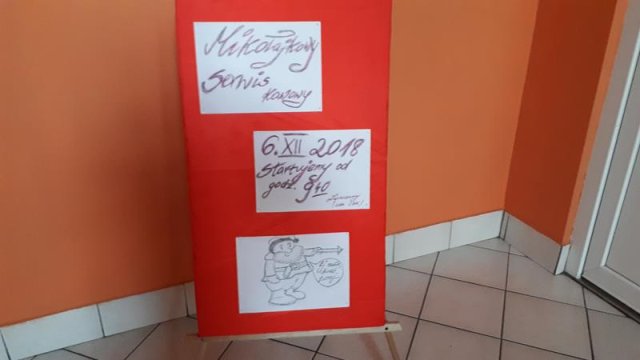 Mikołajkowy
Serwis
kawowy
6.XII 2018
Startujemy od
godz. 9 40